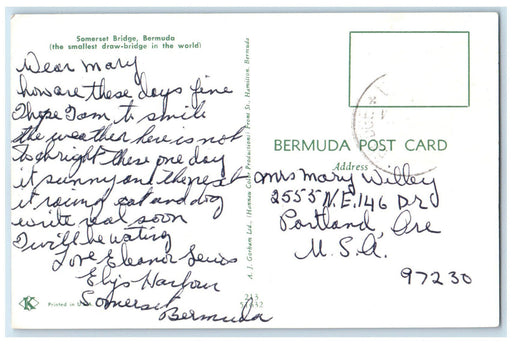 Somerset Bridge, Bermuda
(the smallest draw-bridge in the world)
Dear Mary
how are these days fine
I hope I am, to smile
the weather here is not
to bright these one day
it sunny and the next
it raing cat and dog
write real soon
I will be wating
Love Eleanor Lewis
Elys Harbour
Somerset
Bermuda
K
Printed in U.S.A.
A. J. Gorham Ltd., (Hannau Color Productions) Front St., Hamilton, Bermuda
213
BERMUDA POST CARD
Address
Mrs Mary Willey
2555 N.E. 146 DR
Portland, Ore
U.S.A.
97230